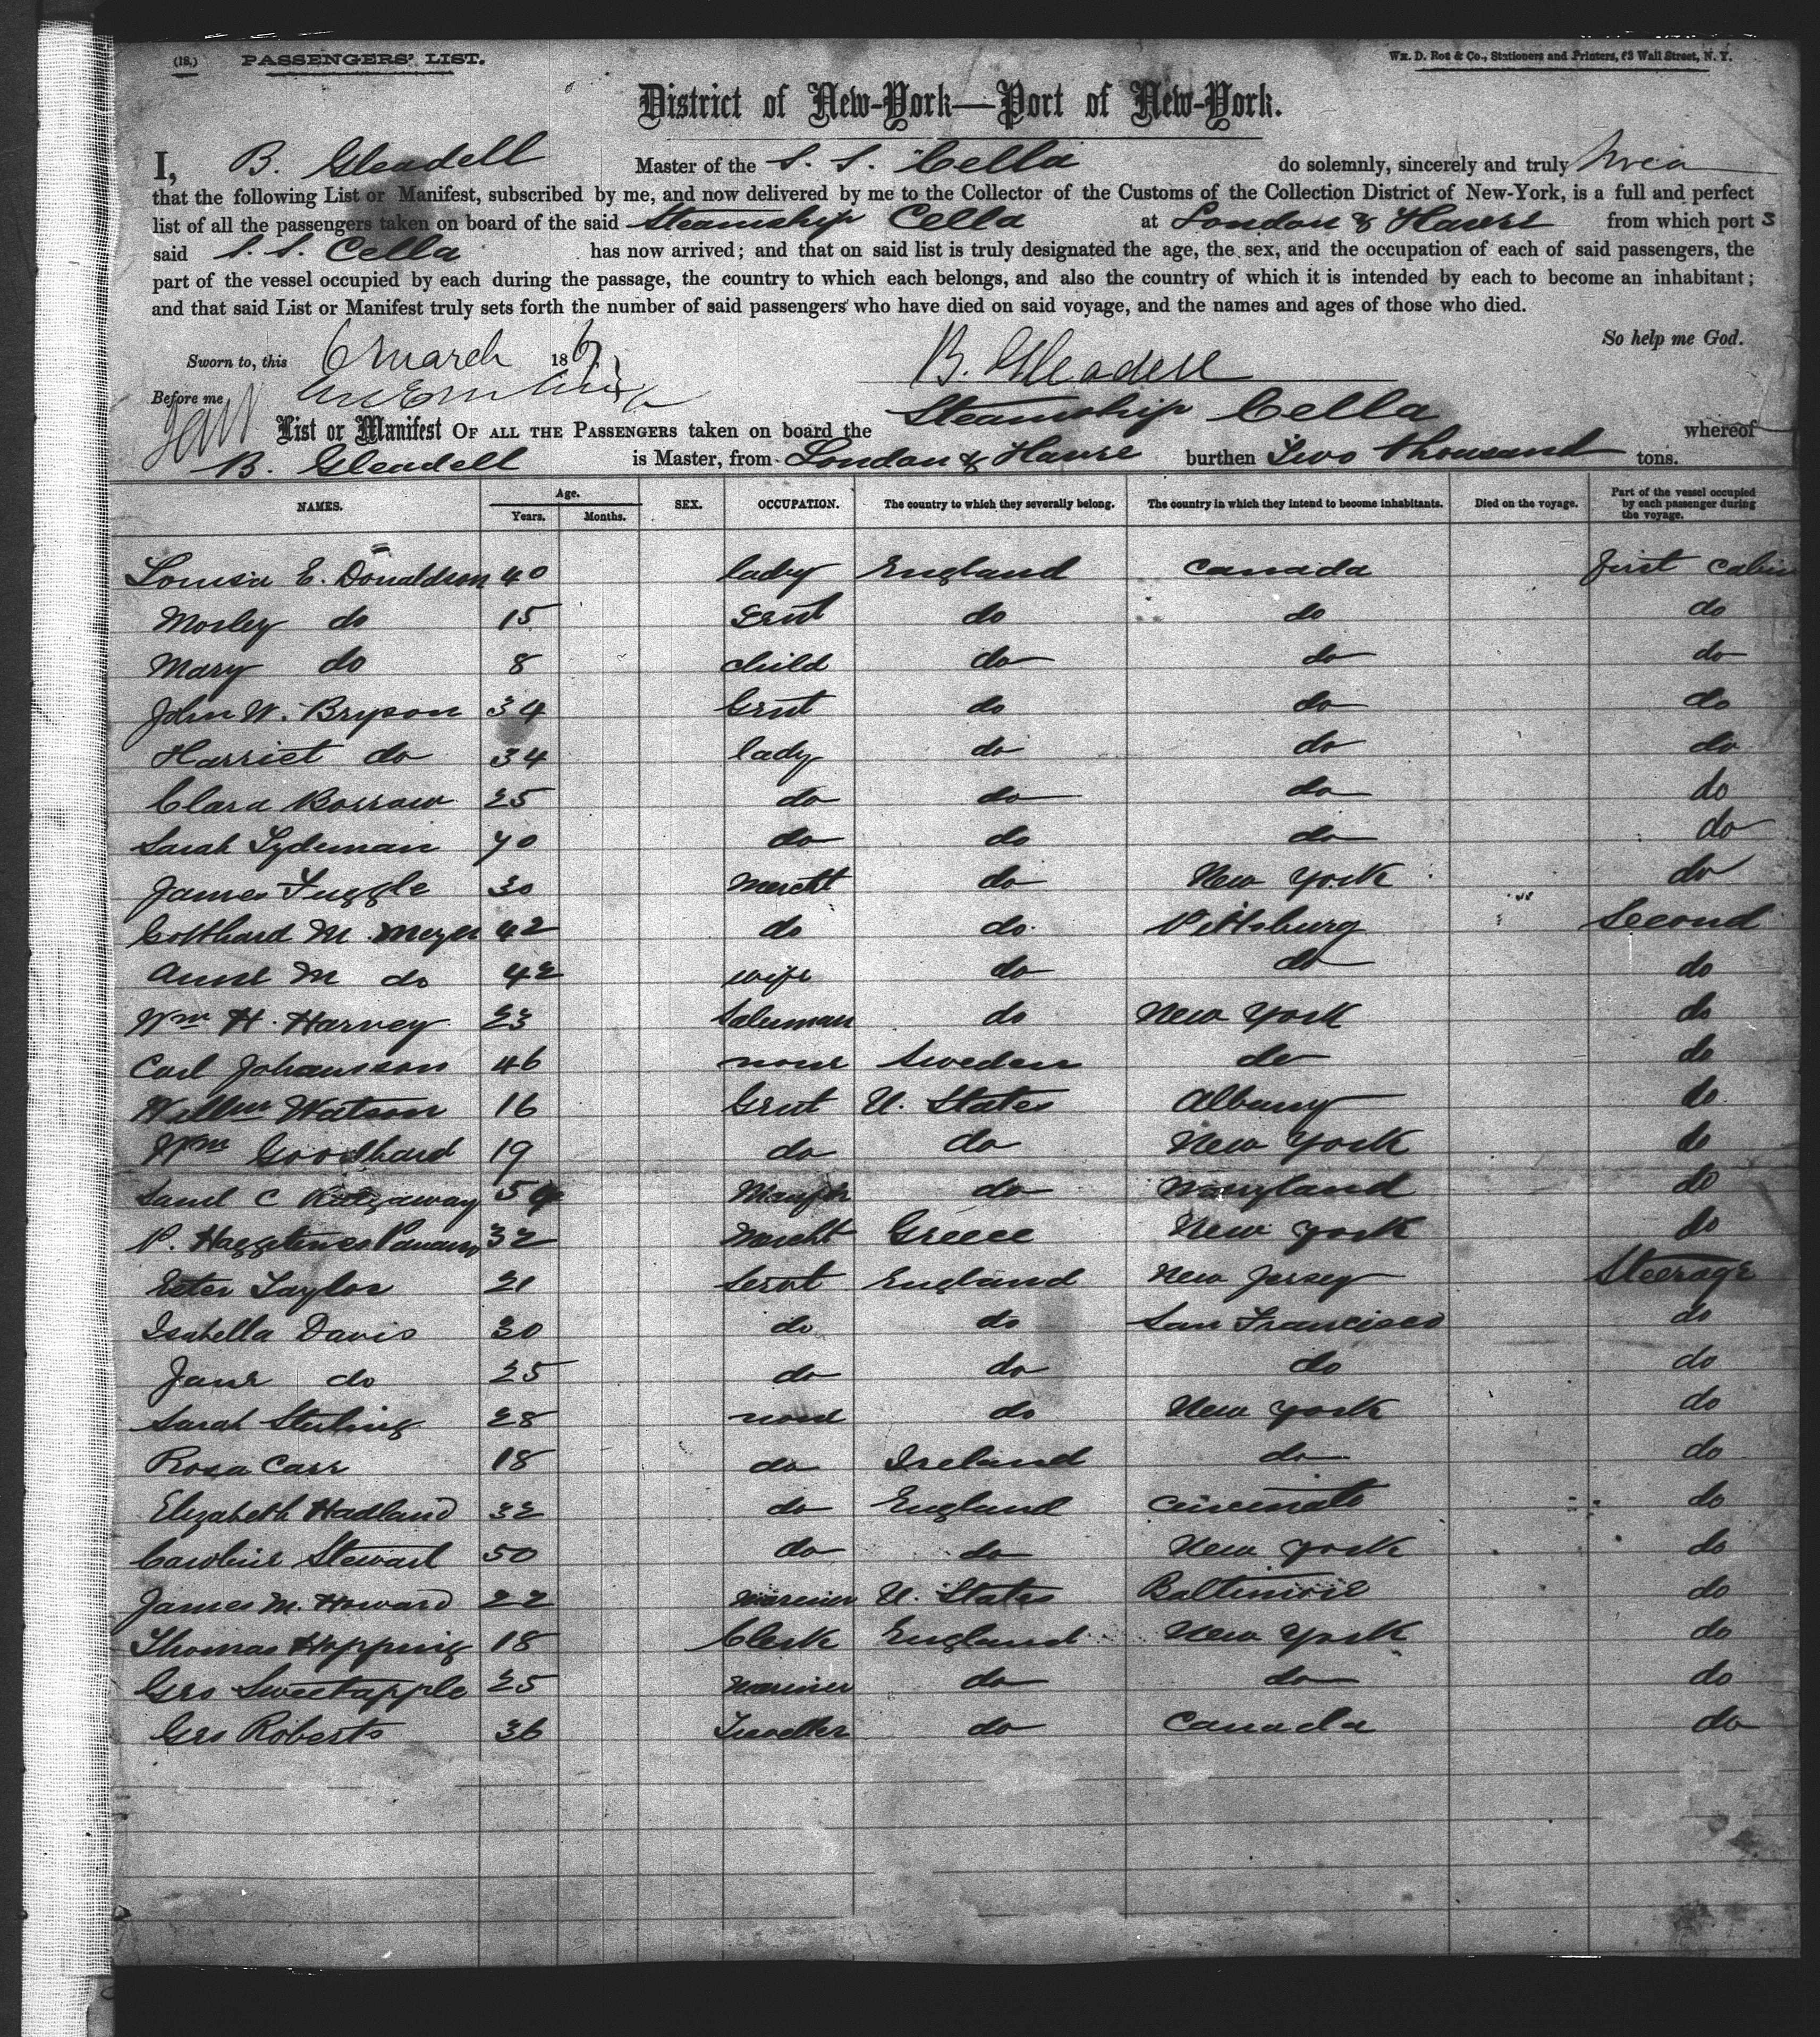 (18.) PASSENGERS' LIST. Wm. D. Roe & Co., Stationers and Printers, 63 Wall Street, N. Y.
District of New-York—Port of New-York.
I, B. Gleadell Master of the S. S. Cella do solemnly, sincerely and truly
that the following List or Manifest, subscribed by me, and now delivered by me to the Collector of the Customs of the Collection District of New-York, is a full and perfect
list of all the passengers taken on board of the said Steamship Cella at London & Havre from which port s
said S. S. Cella has now arrived; and that on said list is truly designated the age, the sex, and the occupation of each of said passengers, the
part of the vessel occupied by each during the passage, the country to which each belongs, and also the country of which it is intended by each to become an inhabitant;
and that said List or Manifest truly sets forth the number of said passengers who have died on said voyage, and the names and ages of those who died.
So help me God.
Sworn to, this 6 March 186 B. Gleadell
Before me
List or Manifest OF ALL THE PASSENGERS taken on board the Steamship Cella whereof
B. Gleadell is Master, from London & Havre burthen Two Thousand tons.
NAMES. Age. Years. Months. SEX. OCCUPATION. The country to which they severally belong. The country in which they intend to become inhabitants. Died on the voyage. Part of the vessel occupied by each passenger during the voyage.
Louisa E. Donaldson 40 lady England Canada first cabin
Morley do 15 Gent do do do
Mary do 8 child do do do
John W. Bryson 34 Gent do do do
Harriet do 34 lady do do do
Clara Borrow 25 do do do do
Sarah Lydeman do do do do
James Fuggle 30 Mercht do New York do
Gotthard M. Meyer 42 do do Pittsburg Second
Anne M do 42 wife do do do
Wm H. Harvey 23 Salesman do New York do
Carl Johansson 46 none Sweden do do
Willm Watson 16 Gent U. States Albany do
Wm Goodhard 19 do do New York do
Saml C 54 do Maryland do
P. 32 Mercht Greece New York do
Peter Taylor 21 Servt England New Jersey Steerage
Isabella Davis 30 do do San Francisco do
Jane do 25 do do do do
Sarah Sterling 28 none do New York do
Rosa Carr 18 do Ireland do do
Elizabeth Hadland 32 do England Cincinnati do
Caroline Stewart 50 do do New York do
James M. Howard 22 mariner U. States Baltimore do
Thomas Hopping 18 Clerk England New York do
Geo Sweetapple 25 mariner do do do
Geo Roberts 36 do Canada do